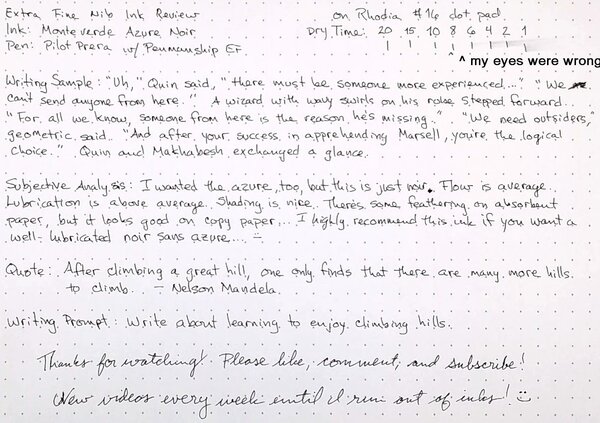 Extra Fine Nib Ink Review on Rhodia #16 dot pad
Ink: Monteverde Azure Noir Dry Time: 20 15 10 8 6 4 2 1
Pen: Pilot Prera w/ Penmanship EF
^ my eyes were wrong
Writing Sample: "Uh," Quin said, "there must be someone more experienced..." "We
can't send anyone from here." A wizard with wavy swirls on his robe stepped forward.
"For all we know, someone from here is the reason he's missing." "We need outsiders,"
geometric said. "And after your success in apprehending Marsell, you're the logical
choice." Quin and Makhabesh exchanged a glance.
Subjective Analysis: I wanted the azure, too, but this is just noir. Flow is average.
Lubrication is above average. Shading is nice. There's some feathering on absorbent
paper, but it looks good on copy paper... I highly recommend this ink if you want a
well-lubricated noir sans azure...
Quote: After climbing a great hill, one only finds that there are many more hills
to climb. - Nelson Mandela
Writing Prompt: Write about learning to enjoy climbing hills.
Thanks for watching! Please like, comment, and subscribe!
New videos every week until I run out of inks!